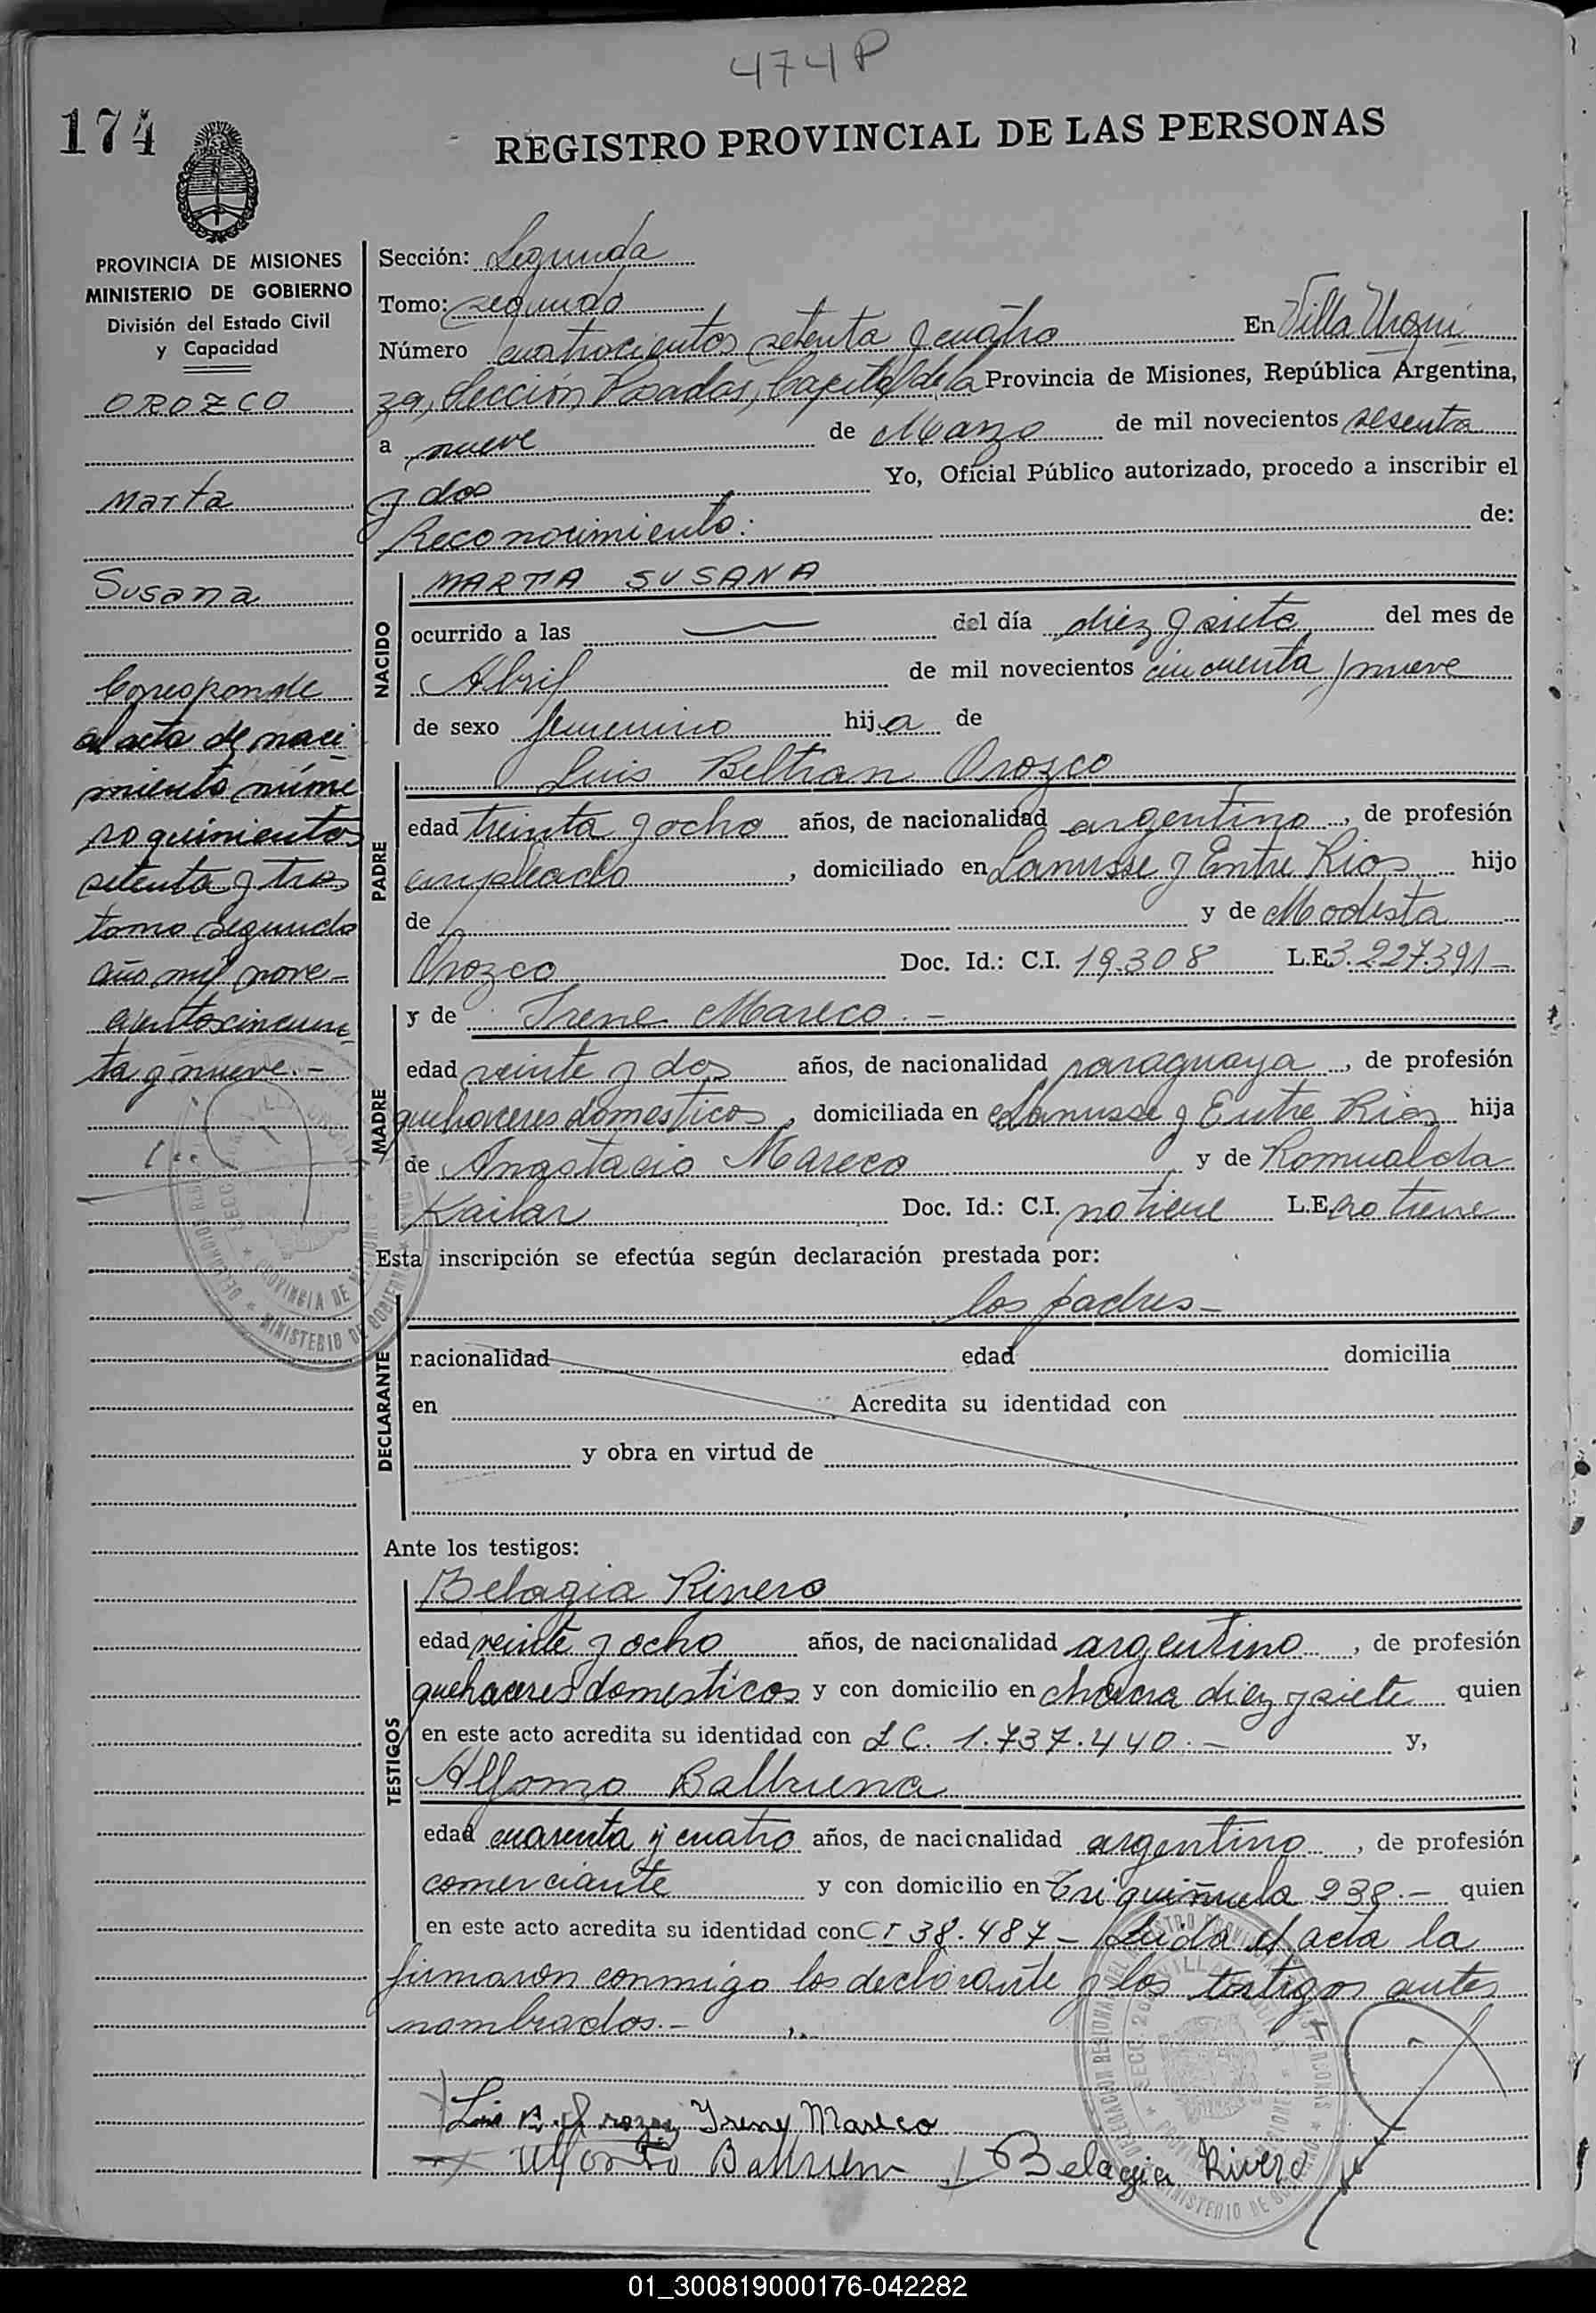 474 P
174
REGISTRO PROVINCIAL DE LAS PERSONAS
PROVINCIA DE MISIONES
MINISTERIO DE GOBIERNO
División del Estado Civil
y Capacidad
OROZCO
Marta
Susana
Corresponde
al acta de naci
miento núme
ro quinientos
setenta y tres
tomo segundo
año mil nove-
cientos cincuen
ta y nueve.-
Sección: Segunda
Tomo: segundo
Número cuatrocientos setenta y cuatro En Villa Urqui
za, Sección Posadas, Capital de la Provincia de Misiones, República Argentina,
a nueve de Marzo de mil novecientos sesenta
y dos Yo, Oficial Público autorizado, procedo a inscribir el
Reconocimiento: de:
NACIDO
MARTA SUSANA
ocurrido a las — del día diez y siete del mes de
Abril de mil novecientos cincuenta y nueve
de sexo femenino hija de
PADRE
Luis Beltran Orozco
edad treinta y ocho años, de nacionalidad argentino, de profesión
empleado, domiciliado en Lanusse y Entre Rios hijo
de y de Modesta
Orozco Doc. Id.: C.I. 19.308 L.E. 3.227.391-
MADRE
y de Irene Mareco.-
edad veinte y dos años, de nacionalidad paraguaya, de profesión
quehaceres domesticos, domiciliada en Lanusse y Entre Rios hija
de Anastacio Mareco y de Romualda
Kailar Doc. Id.: C.I. no tiene L.E. no tiene
Esta inscripción se efectúa según declaración prestada por:
los padres-
DECLARANTE
nacionalidad edad domicilia
en Acredita su identidad con
y obra en virtud de
Ante los testigos:
TESTIGOS
Belagia Rivero
edad veinte y ocho años, de nacionalidad argentino, de profesión
quehaceres domesticos y con domicilio en chacra diez y siete quien
en este acto acredita su identidad con L C. 1.737.440.- y,
Alfonso Balbuena
edad cuarenta y cuatro años, de nacionalidad argentino, de profesión
comerciante y con domicilio en 938.- quien
en este acto acredita su identidad con C I 38.487- Leida el acta la
firmaron conmigo los declarante y los testigos antes
nombrados.-
Luis B. Orozco Irene Mareco
Alfonso Balbuena Belagia Rivero
01_300819000176-042282